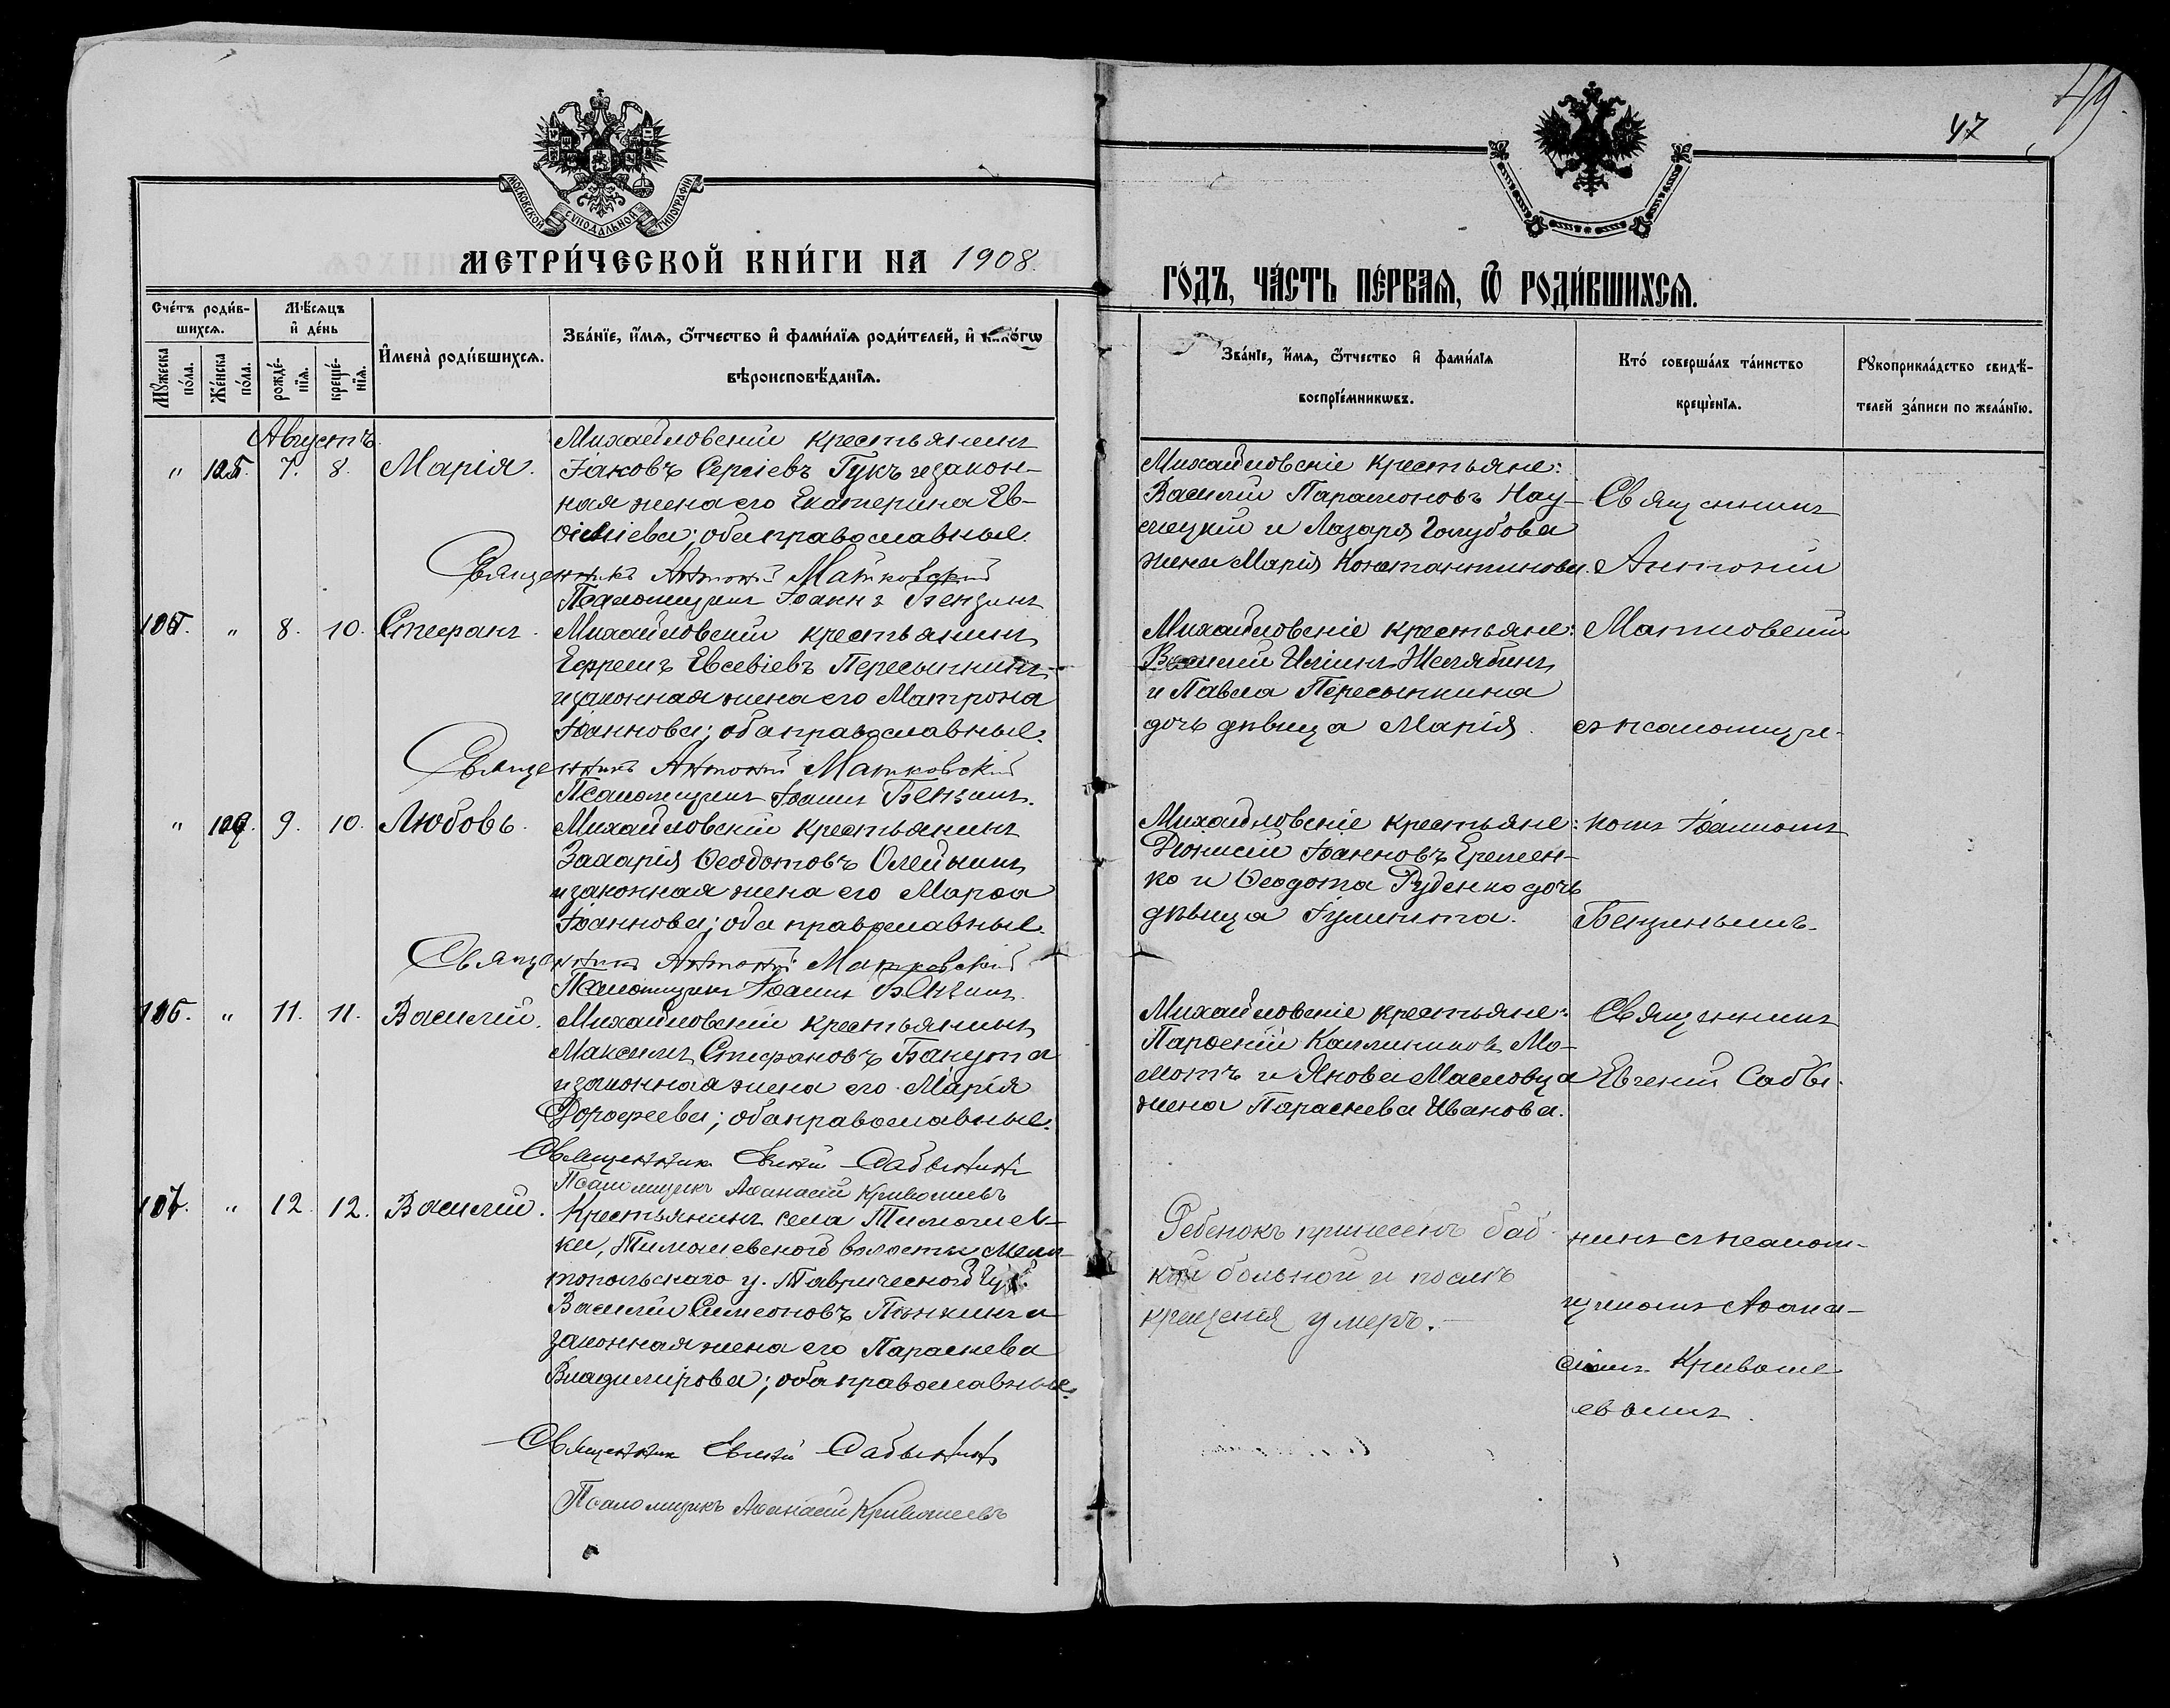 49
47
МОСКОВСКОЙ СѴНОДАЛЬНОЙ ТИПОГРАФІИ
МЕТРИ́ЧЕСКОЙ КНИ́ГИ НА 1908.
ГО́ДЪ, ЧА́СТЬ ПЕ́РВАѦ, Ѿ РОДИ́ВШИХСѦ.
Сче́тъ роди́в-
шихсѧ.
Мꙋжеска
по́ла.
Же́нска
по́ла.
Мѣ́сѧцъ
и҆ де́нь
рожде́-
нїѧ.
креще́-
нїѧ.
И҆мена̀ роди́вшихсѧ.
Зва́нїе, и҆́мѧ, ѻ҆́тчество и҆ фами́лїѧ роди́телей, и҆ како́гѡ
вѣроисповѣ́данїѧ.
Зва́нїе, и҆́мѧ, ѻ҆́тчество и҆ фами́лїѧ
воспрїе́мникѡвъ.
Кто̀ соверша́лъ та́инство
креще́нїѧ.
Рꙋкоприкла́дство свидѣ́-
телей за́писи по жела́нїю.
Августъ.
" 7. 8. Марія.
Михайловскій крестьянинъ
Іаковъ Сергіевъ Гукъ и закон-
ная жена его Екатерина Ев-
ѳиміева; оба православные.
Священникъ Антоній Матковскій
Псаломщикъ Іоаннъ Бензинъ
Михайловскіе крестьяне:
Василій Парамоновъ Нау-
и Лазаря Голубова
жена Марія Константинова.
Священникъ
Антоній
" 8. 10. Стефанъ.
Михайловскій крестьянинъ
Ефремъ Евсевіевъ Пересыпкинъ
и законная жена его Матрона
Іоаннова; оба православные.
Священникъ Антоній Матковскій
Псаломщикъ Іоаннъ Бензинъ.
Михайловскіе крестьяне:
Василій Иліинъ Желябинъ
и Павла Пересыпкина
дочь дѣвица Марія.
Матковскій
съ псаломщи-
" 9. 10. Любовь.
Михайловскій крестьянинъ
Захарія Ѳеодотовъ Олейникъ
и законная жена его Марѳа
Іоаннова; оба православные.
Священникъ Антоній Матковскій
Псаломщикъ Іоаннъ Бензинъ.
Михайловскіе крестьяне:
Діонисій Іоанновъ Еремен-
ко и Ѳеодота Руденко дочь
дѣвица Іулитта.
комъ Іоанномъ
Бензинымъ.
" 11. 11. Василій.
Михайловскій крестьянинъ
Максимъ Стефановъ Бакута
и законная жена его Марія
Дорофеева; оба православные.
Священникъ Евгеній Сабынинъ
Псаломщикъ Аѳанасій Кривошеевъ
Михайловскіе крестьяне:
Парѳеній Каллиниковъ Мо-
мотъ и Якова Масловца
жена Параскева Иванова.
Священникъ
Евгеній Сабы-
107. " 12. 12. Василій.
Крестьянинъ села Тимошев-
ки, Тимошевской волости Мели-
топольскаго у. Таврической губ.
Василій Симеоновъ и
законная жена его Параскева
Владимірова; оба православные.
Священникъ Евгеній Сабынинъ
Псаломщикъ Аѳанасій Кривошеевъ
Ребенокъ принесенъ баб-
кой больной и послѣ
крещенія умеръ.
нинъ съ псалом-
щикомъ Аѳана-
сіемъ Кривоше-
евымъ.